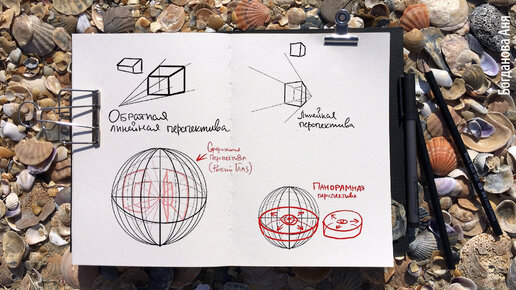 Обратная
линейная перспектива
Линейная
перспектива
Сферическая
перспектива
(Рыбий Глаз)
Панорамная
перспектива
Богданова Аня